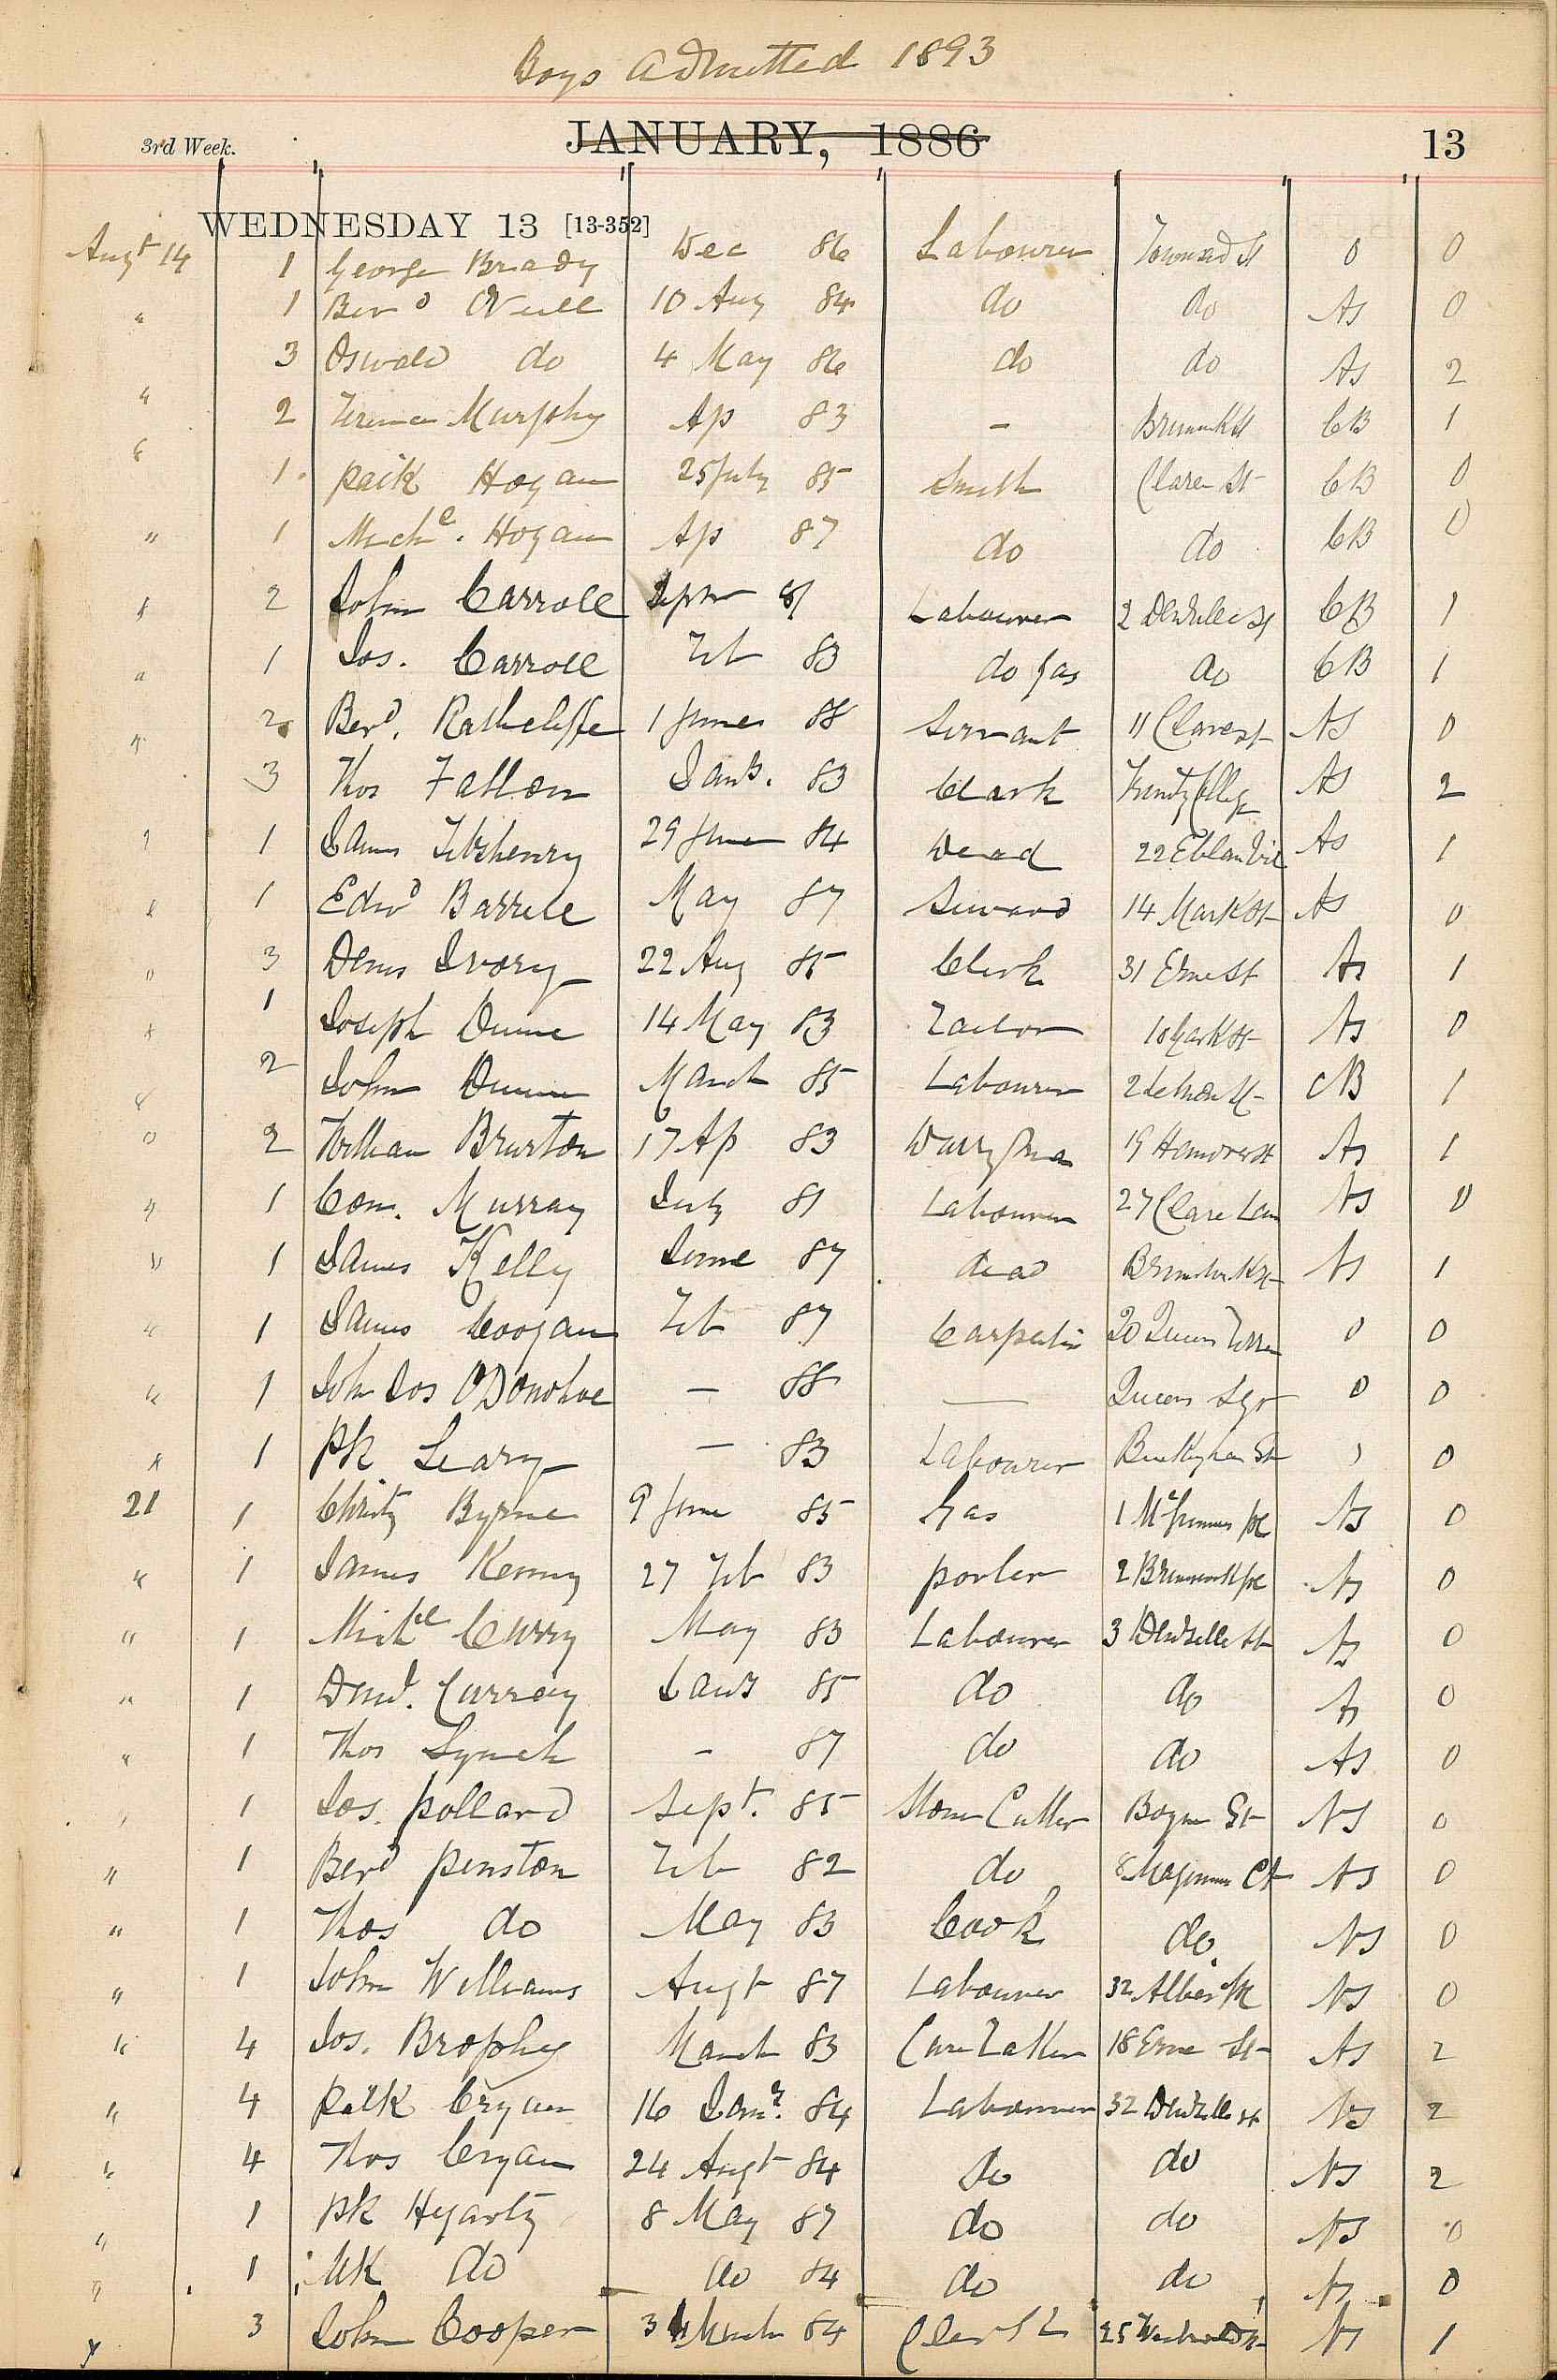 Boys admitted 1893
3rd Week. JANUARY, 1886 13
WEDNESDAY 13 [13-352]
Augt 14 1 George Brady Dec 86 Labourer Townsend St 0 0
" 1 Berd O'Neill 10 Aug 84 do do As 0
3 Oswald do 4 May 86 do do As 2
" 2 Murphy Ap 83 – CB 1
" 1 Patk Hogan 25 July 85 Smith Clare St CB 0
" 1 Michl. Hogan Ap 87 do do CB 0
" 2 John Carroll Septr Labourer 2 Denzille St CB 1
" 1 Jos. Carroll Feb 83 do Gas do CB 1
" 2 Berd. Rathcliffe 1 June 88 Servant 11 Clare st AS 0
3 Thos Fallon Jany. 83 Clark Trinity College AS 2
" 1 James Fitzhenry 29 June 84 Dead 22 Eblan As 1
" 1 Edwd Barrell May 87 14 Mark St As 0
" 3 Denis Ivory 22 Aug 85 Clerk 31 Erne St As 1
" 1 Joseph Dunne 14 May 83 Tailor As 0
" 2 John Dunne March 85 Labourer 2 CB 1
" 2 William Brurton 17 Ap 83 19 Hanover st As 1
" 1 Con. Murray July 81 Labourer 27 Clare Lan As 0
" 1 James Kelly June 87 dead As 1
" 1 James Coogan Feb 87 20 Queens 0 0
" 1 John Jos O'Donohoe – 88 — Queens Sqr 0 0
" 1 Pk Leary – 83 Labourer St 0
21 1 Christy Byrne 9 June 85 Gas 1 As 0
" 1 James Kenny 27 Feb 83 porter 2 As 0
" 1 Michl Curry May 83 Labourer 3 Denzille St As 0
" 1 Curray Jany 85 do do As 0
" 1 Thos Lynch – 87 do do As 0
1 Jos. Pollard Sept. 85 Stone Cutter Boyne St AS 0
" 1 Berd Penston Feb 82 do 8 Magennis Ct AS 0
" 1 Thos do May 83 Cook do AS 0
" 1 John Williams Augt 87 Labourer 32 AS 0
" 4 Jos. Brophy March 83 Care Taker 18 Erne St As 2
" 4 Patk Cryan 16 Jany. 84 Labourer 32 Denzille st As 2
" 4 Thos Cryan 24 Augt 84 Do do AS 2
" 1 Pk Hegarty 8 May 87 do do AS 0
" 1 Mk do do 84 do do As 0
" 3 John Cooper 3 March 84 25 As 1